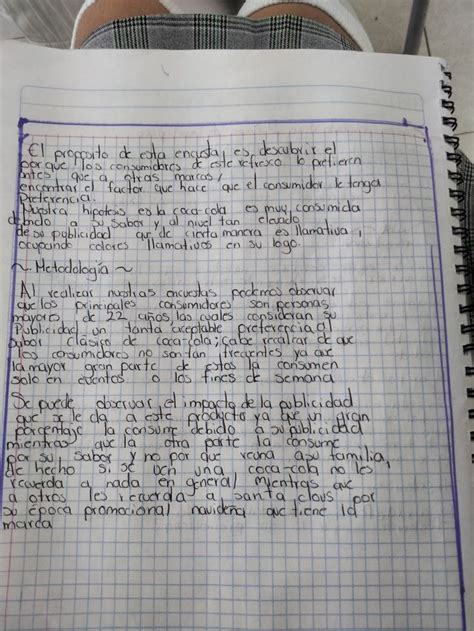 El proposito de esta encusta, es, descubrir el
porque los consumidores de este refresco lo prefieren
antes que a otras marcas,
encontrar el factor que hace que el consumidor le tenga
preferencia.
Nuestra hipotesis es la coca-cola es muy consumida
debido a su sabor y al nivel tan elevado
de su publicidad que de cierta manera es llamativa,
ocupando colores llamativos en su logo.
~ Metodología ~
Al realizar nuestras encuestas podemos observar
que los principales consumidores son personas
mayores de 22 años, las cuales consideran su
Publicidad un tanto aceptable preferencia al
sabor clásico de coca-cola; cabe recalcar de que
los consumidores no son tan frecuentes ya que
la mayor gran parte de estos la consumen
solo en eventos o los fines de semana
Se puede observar el impacto de la publicidad
que se le da a este producto ya que un gran
porcentaje la consume debido a su publicidad
mientras que la otra parte la consume
por su sabor y no por que reuna a su familia,
de hecho si se ven una coca-cola no les
recuerda a nada en general mientras que
a otros les recuerda a santa claus por
su época promocional navideña que tiene la
marca